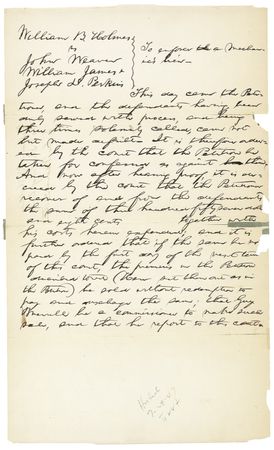 William B Holmes
vs
John Weaver
William James &
Joseph D. Perkins
To enforce a Mechan
ics lien
This day came the Peti
tioner, and the defendants having been
duly served with process, and being
three times solemnly called, came not
but made default. It is therefore order
ed by the Court that the Petition be
taken for confessed as against them
And now after hearing proof it is or
dered by the court that the Petitioner
recover of and from the defendants
the sum of three hundred fifty seven dol
and eighty cents together with
his costs herein expended, and it is
further ordered that if the same be not
paid by the first day of the next term
of this court, the premises in the Petition
described Viz (Here set them out as in
the Petition) be sold without redemption to
pay and discharge the same; that Guy
be a commissioner to make such
sale, and that he report to this court